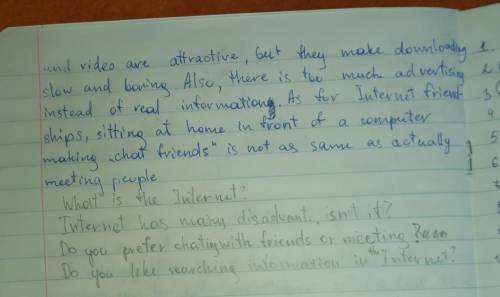 and video are attractive, but they make downloading
slow and boring Also, there is too much advertising
instead of real information. As for Internet friend
ships, sitting at home in front of a computer
making „chat friends" is not as same as actually
meeting people
What is the Internet?
Internet has many disadvant. isn't it?
Do you prefer chating with friends or meeting
Do you like searching information in the Internet?
2
3
4
5
6
7